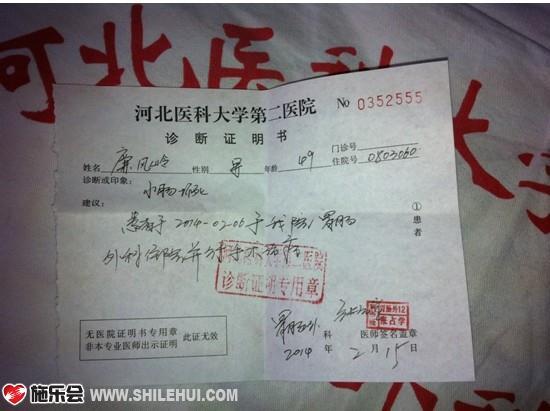 河北医科大学
河北医科大学第二医院 No 0352555
诊断证明书
门诊号
姓名 性别 男 年龄 49 住院号 0803060
诊断或印象:
小肠坏死
建议:
患者于2014-02-06于我院胃肠
外科住院并行手术治疗
①患者
诊断证明专用章
胃肠外科
医师签名盖章
张占学
2014 2月15日
无医院证明书专用章
非本专业医师出示证明
此证无效
施乐会 WWW.SHILEHUI.COM